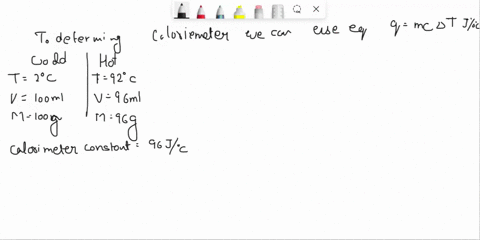 To determing Calorimeter we can use eq q = mC ΔT J/°C
Codd Hot
T = 2°C T = 92°C
V = 100ml V = 96ml
M = 100g M = 96g
Calorimeter constant = 96 J/°C